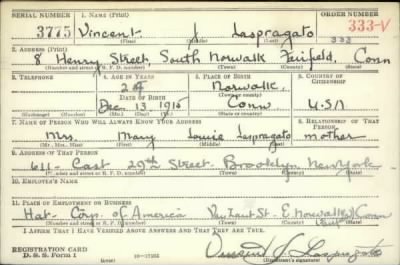 SERIAL NUMBER 1. NAME (Print) ORDER NUMBER
3775 Vincent J Laspragato 333-V
(First) (Middle) (Last) 333
2. ADDRESS (Print)
8 Henry Street, South Norwalk Fairfield, Conn
(Number and street or R. F. D. number) (Town) (County) (State)
3. TELEPHONE 4. AGE IN YEARS 5. PLACE OF BIRTH 6. COUNTRY OF CITIZENSHIP
Norwalk,
DATE OF BIRTH (Town or county)
Dec 13 1915 Conn U.S.A
(Mo.) (Day) (Yr.) (State or country)
7. NAME OF PERSON WHO WILL ALWAYS KNOW YOUR ADDRESS 8. RELATIONSHIP OF THAT PERSON
Mrs. Mary Louise Laspragato mother
(Mr., Mrs., Miss) (First) (Middle) (Last)
9. ADDRESS OF THAT PERSON
611 East 29th Street Brooklyn New York
(Number and street or R. F. D. number) (Town) (County) (State)
10. EMPLOYER'S NAME
11. PLACE OF EMPLOYMENT OR BUSINESS
Hat Corp. of America Van Zant St. E. Norwalk Conn
(Number and street or R. F. D. number) (Town) (County) (State)
I AFFIRM THAT I HAVE VERIFIED ABOVE ANSWERS AND THAT THEY ARE TRUE.
REGISTRATION CARD
D. S. S. Form 1 Vincent J. Laspragato
(Registrant's signature)